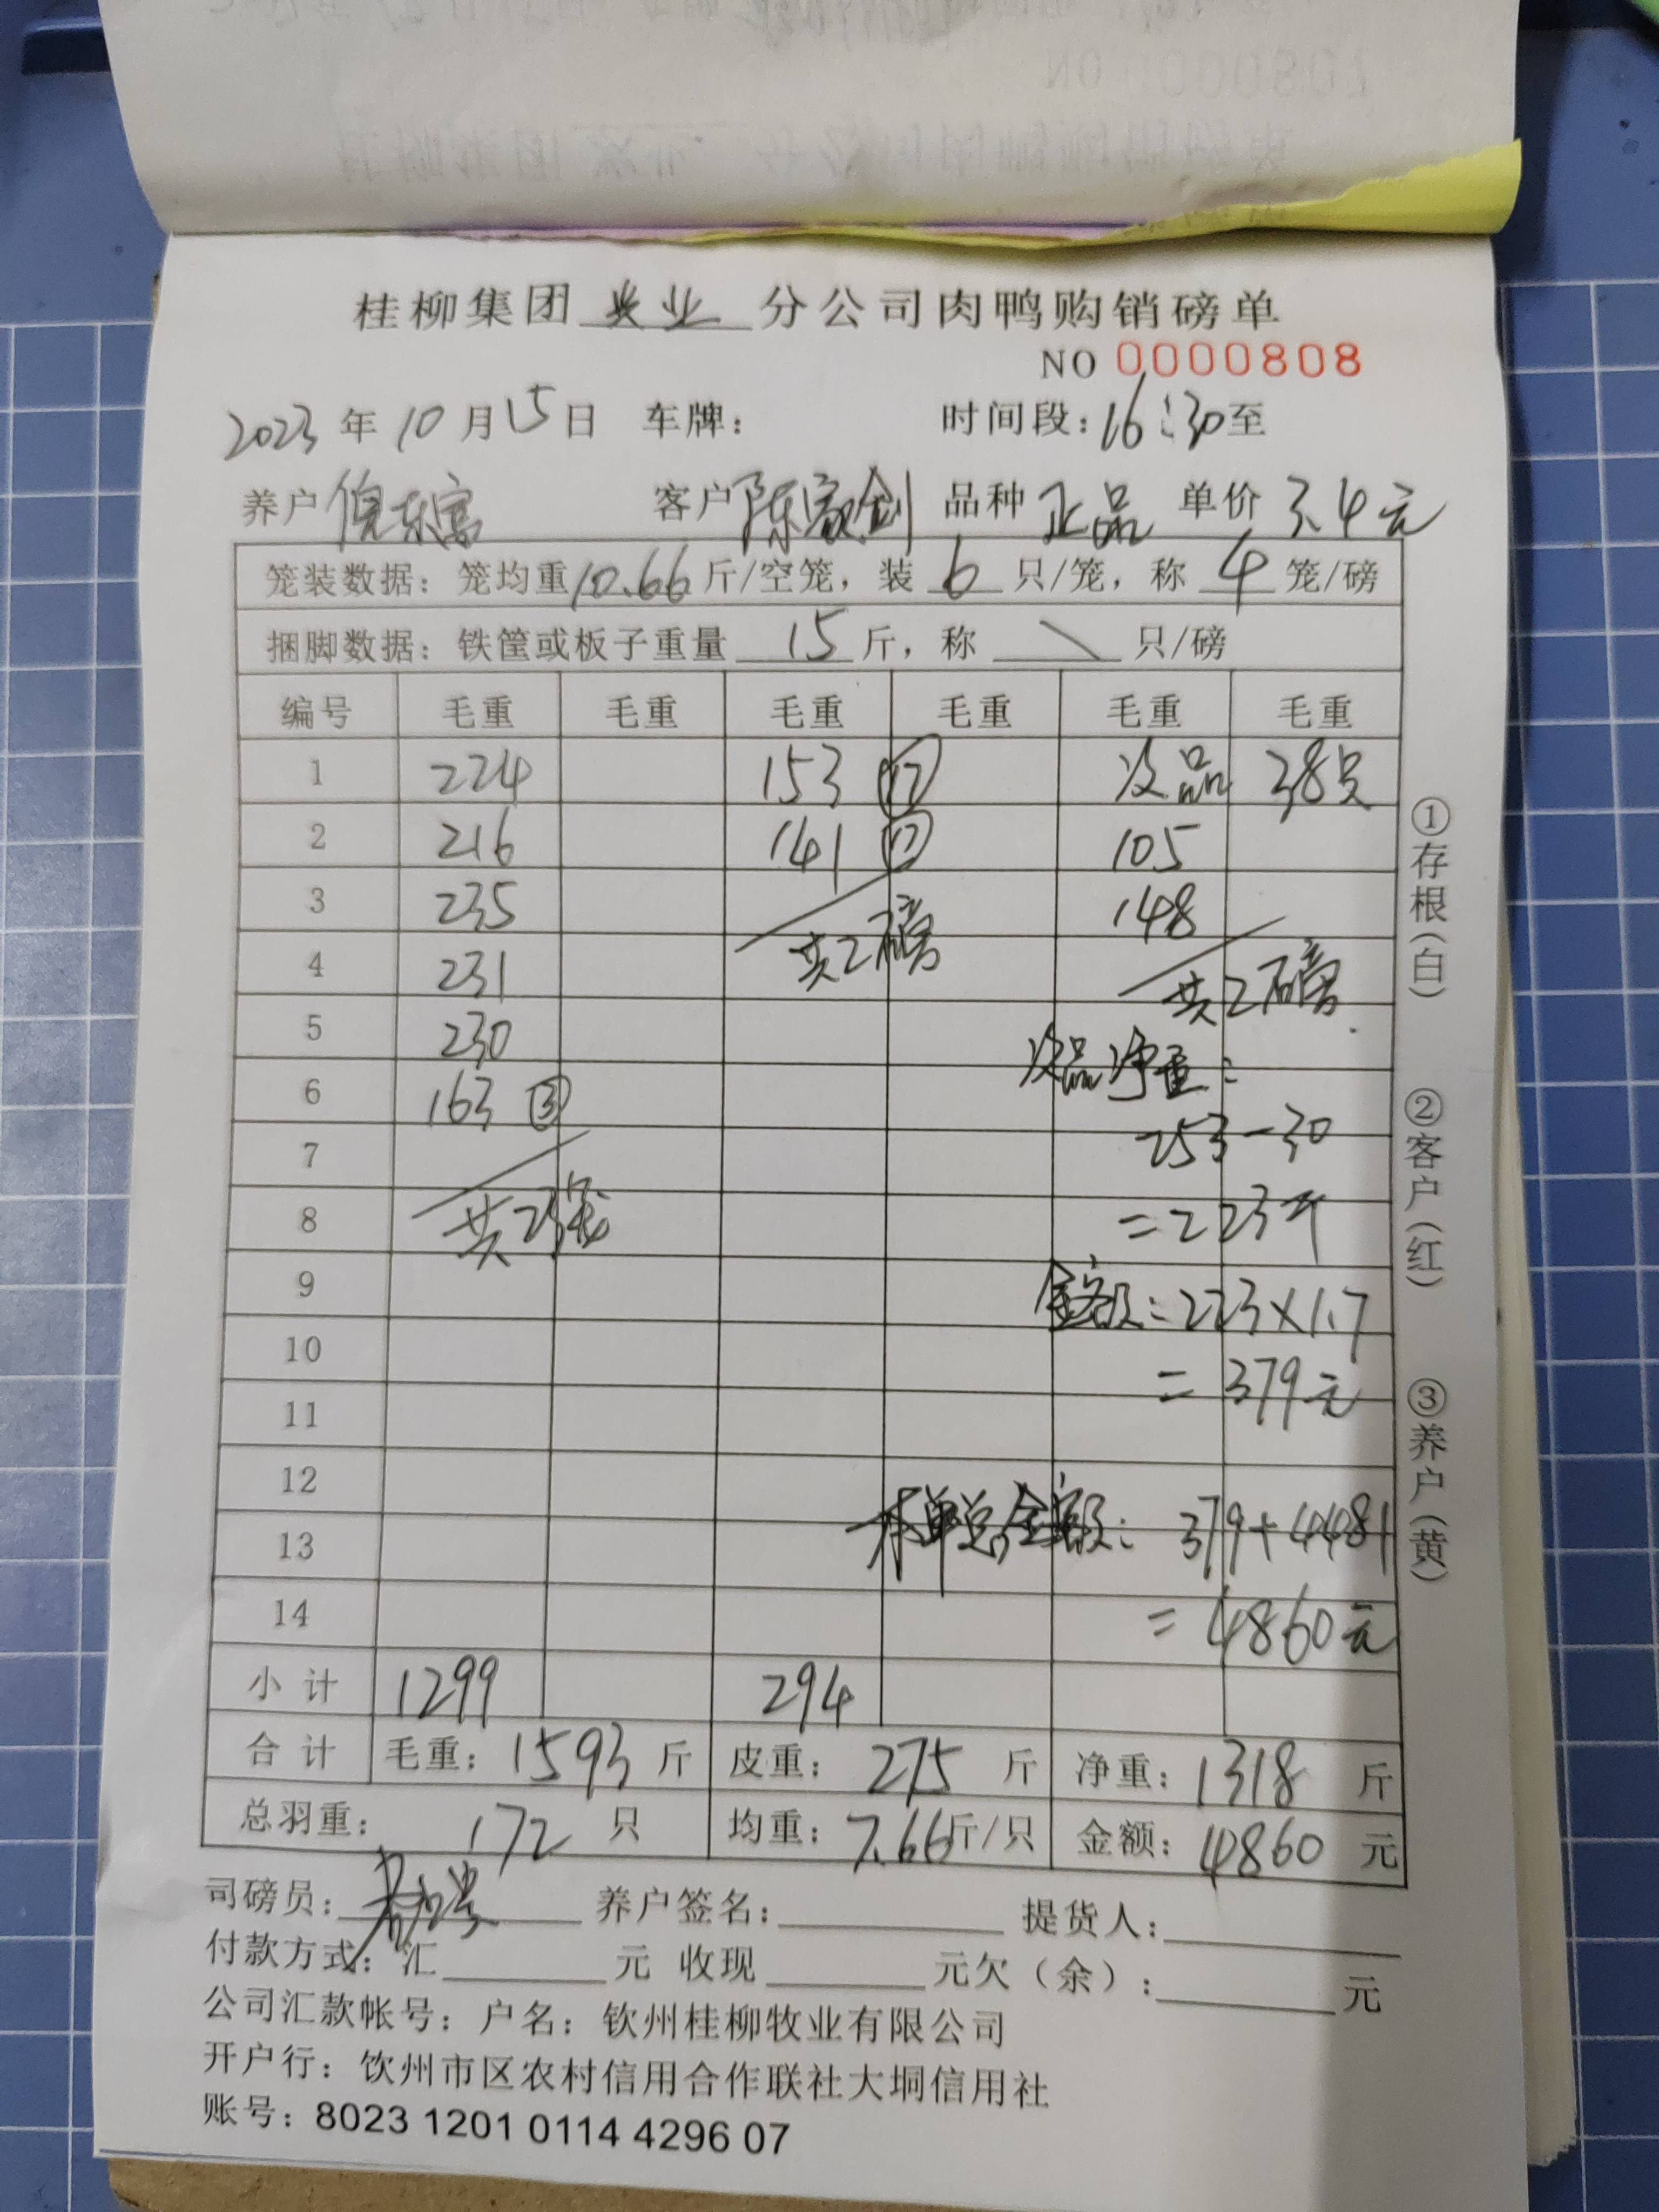 桂柳集团 兴业 分公司肉鸭购销磅单
NO 0000808
2023 年 10 月 15 日 车牌: 时间段: 16:30 至
养户 倪东富 客户 陈家剑 品种 正品 单价 3.4元
笼装数据: 笼均重 10.66 斤/空笼, 装 6 只/笼, 称 4 笼/磅
捆脚数据: 铁筐或板子重量 15 斤, 称 \ 只/磅
编号 毛重 毛重 毛重 毛重 毛重 毛重
1 224 153 ⑰ 次品 38只
2 216 141 ⑰ 105
3 235 148
4 231 共2磅 共2磅
5 230 次品净重:
6 163 ③ 253-30
7
8 共23笼 =223斤
9 金额:=223×1.7
10 =379元
11
12
13 本单总金额: 379+4481
14 =4860元
小计 1299 294
合计 毛重: 1593 斤 皮重: 275 斤 净重: 1318 斤
总羽重: 172 只 均重: 7.66 斤/只 金额: 4860 元
司磅员: 养户签名: 提货人:
付款方式: 汇 元 收现 元欠(余): 元
公司汇款帐号: 户名: 钦州桂柳牧业有限公司
开户行: 饮州市区农村信用合作联社大垌信用社
账号: 8023 1201 0114 4296 07
①存根(白)
②客户(红)
③养户(黄)